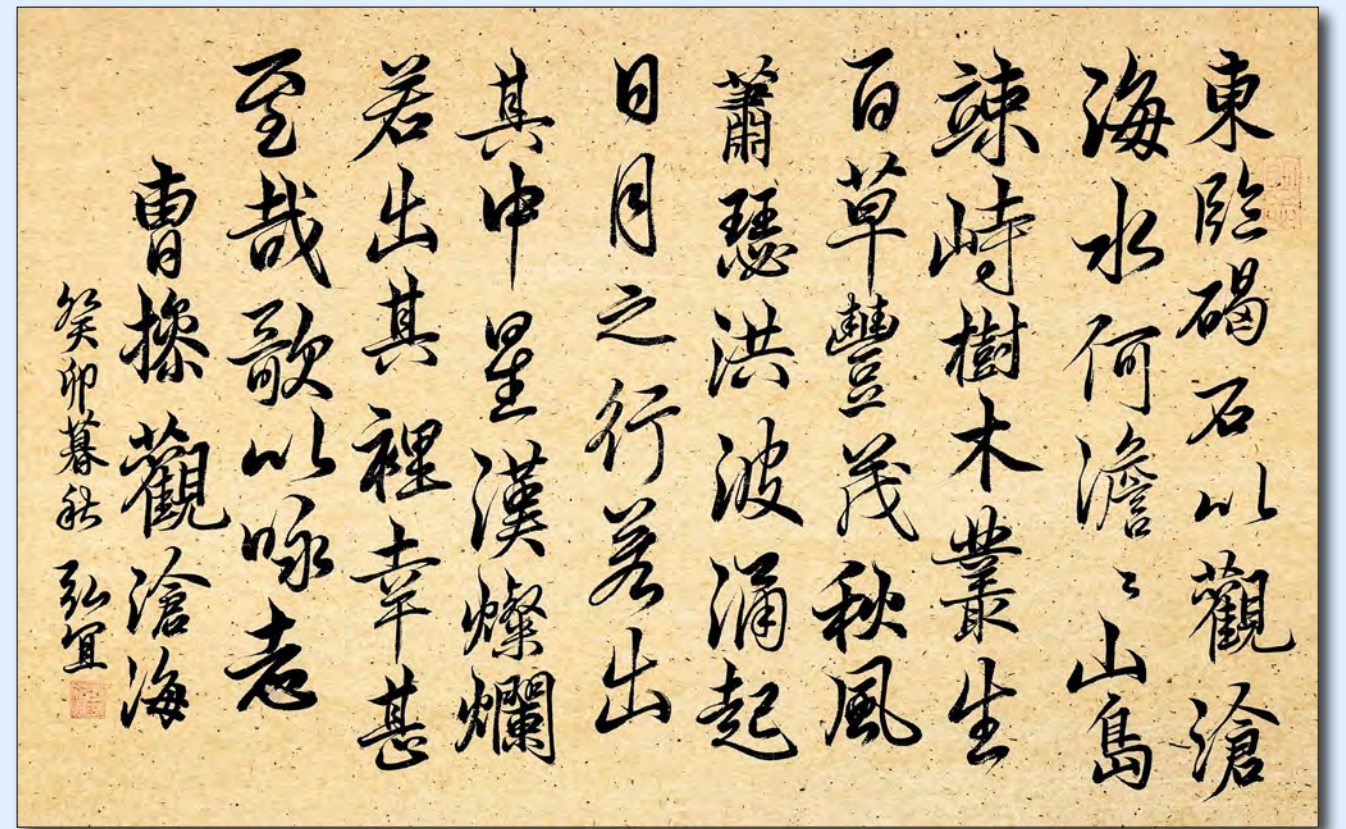 東臨碣石以觀滄
海水何澹〻山島
竦峙樹木叢生
百草豐茂秋風
蕭瑟洪波涌起
日月之行若出
其中星漢燦爛
若出其裡幸甚
至哉歌以咏志
曹操觀滄海
癸卯暮秋 弘宜